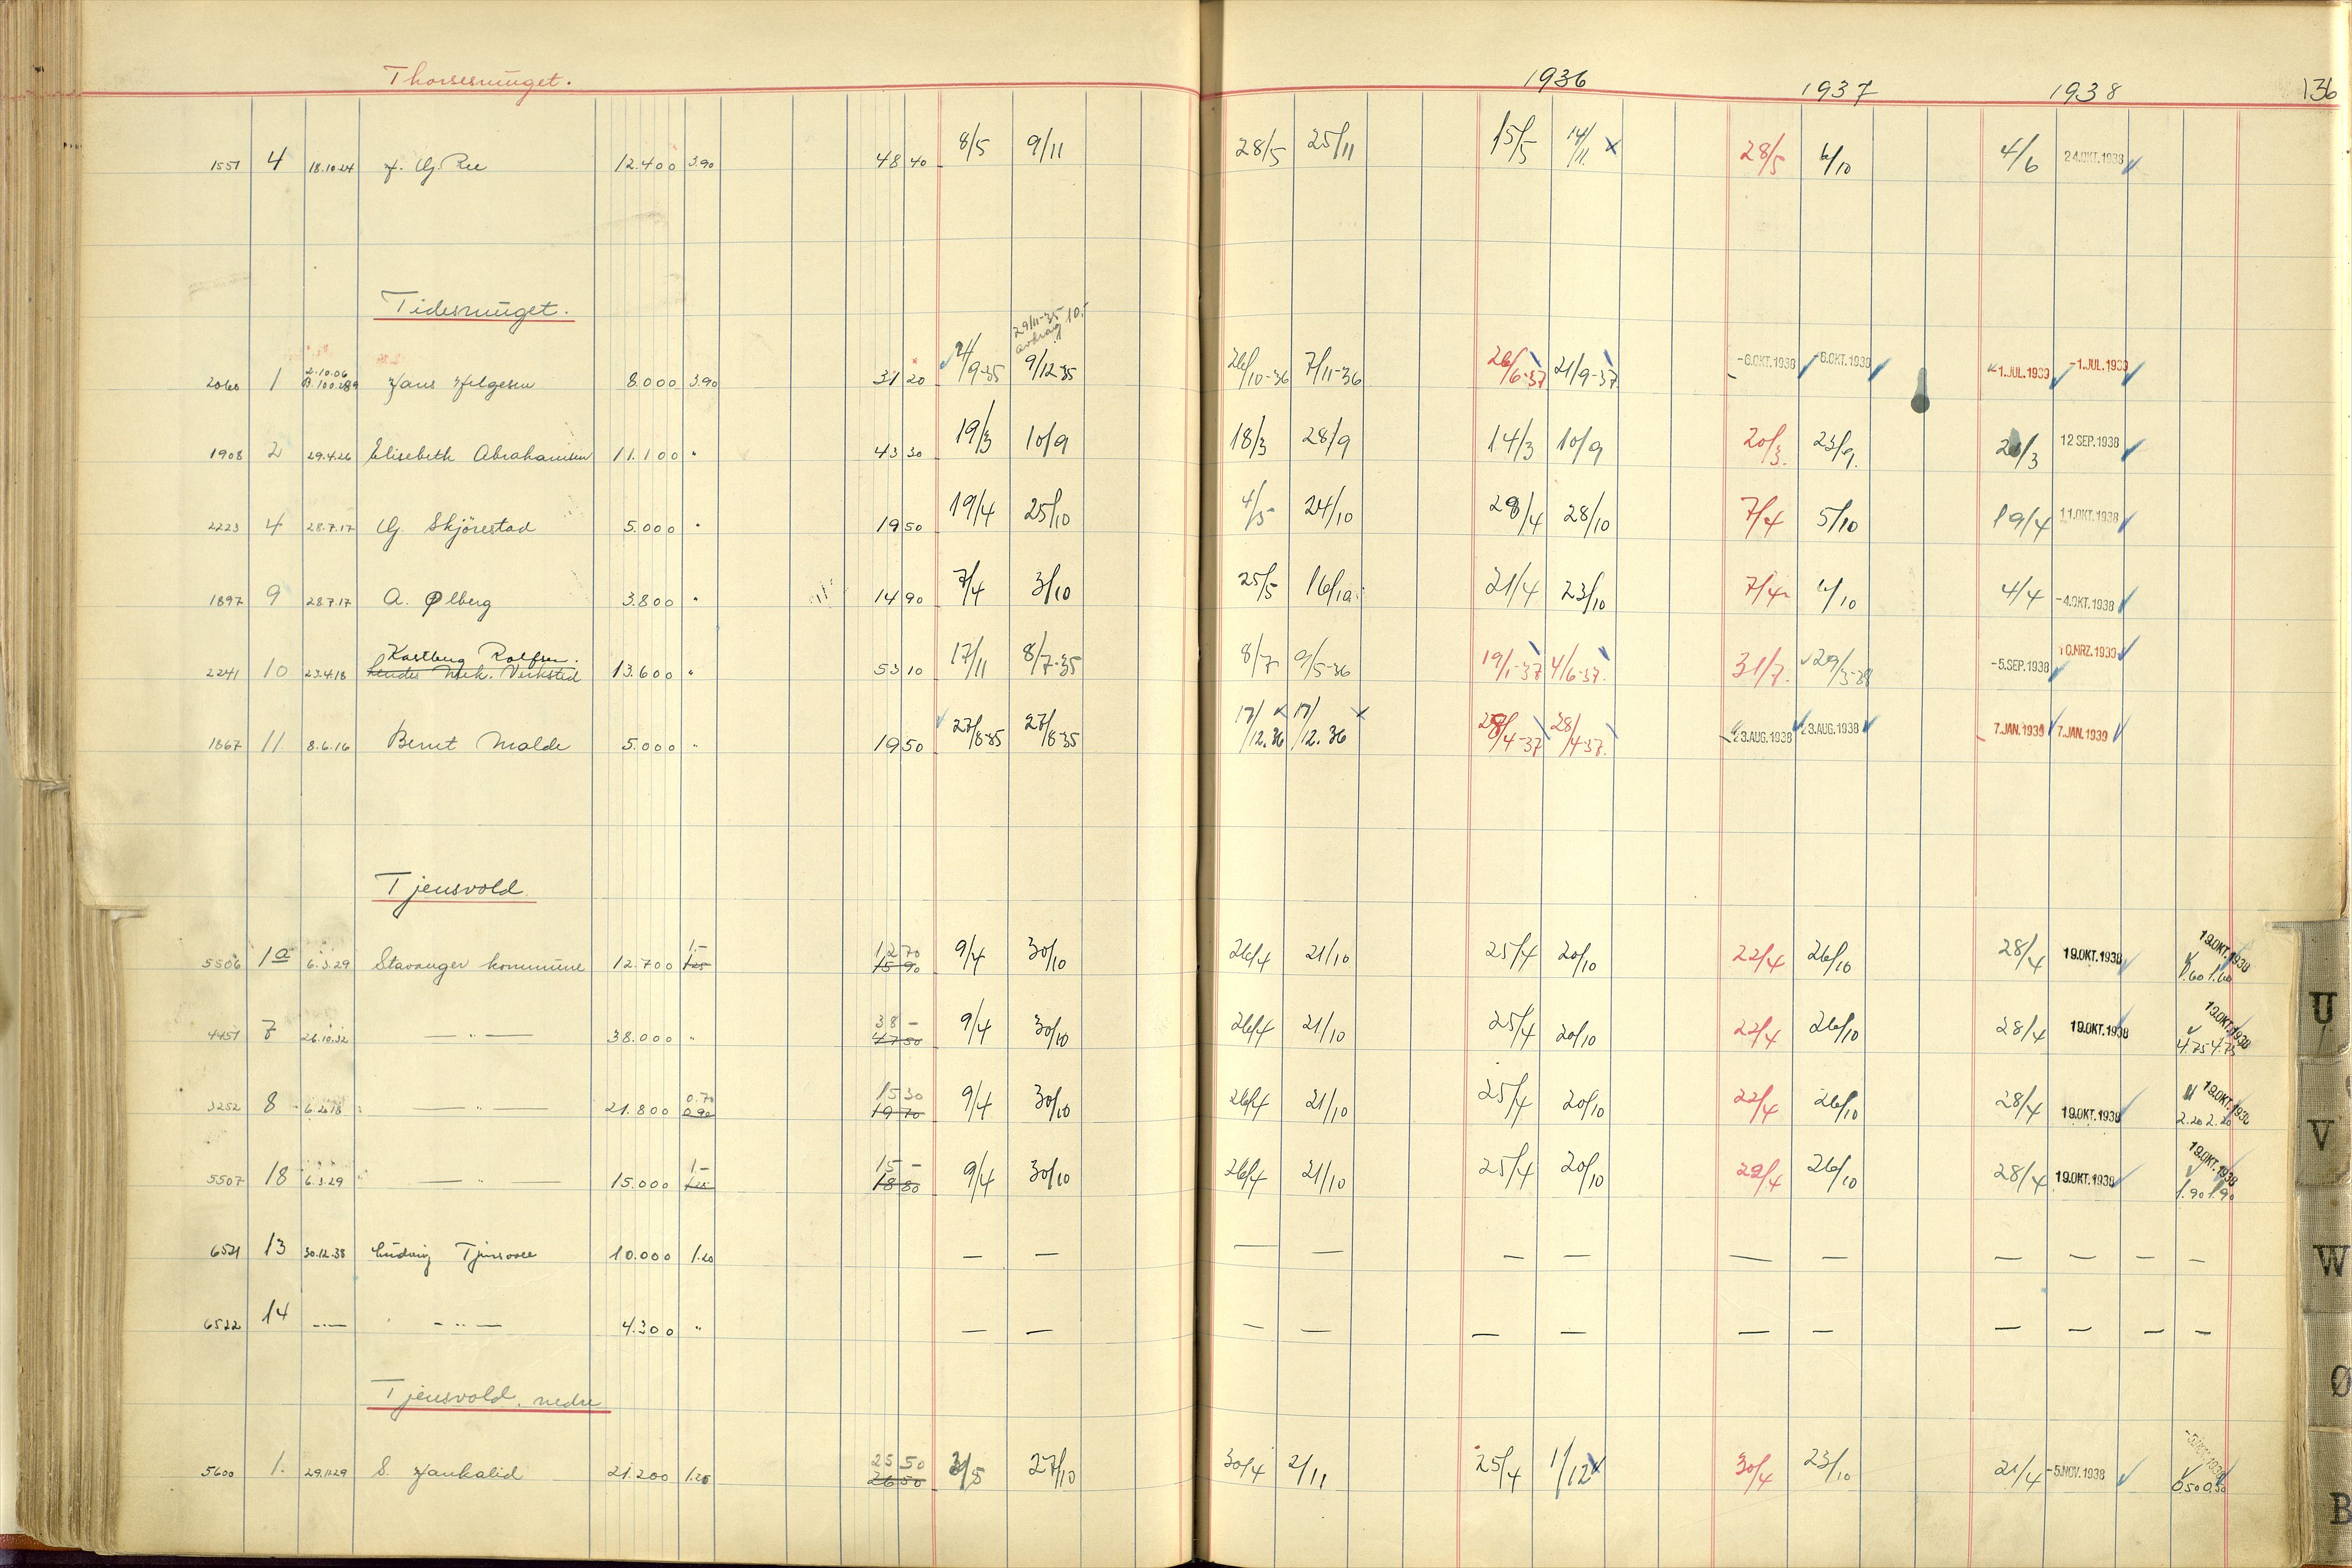 Thorsesmuget. 1936 1937 1938 136
1551 4 18.10.24 12.400 3.90 48 40 8/5 9/11 28/5 25/11 15/5 14/11 x 28/5 6/10 4/6 24.OKT.1938
Tidesmuget.
29/11-35 avdrag 10.-
2060 1 2.10.06 Hans Helgesen 8.000 3.90 31 20 9/12-35 26/10-36 7/11-36 26/6-37 21/9-37 -6.OKT.1938 -6.OKT.1938 -1.JUL.1939 -1.JUL.1939
1908 2 29.4.26 Elisebeth Abrahamsen 11.100 " 43 30 19/3 10/9 18/3 28/9 14/3 10/9 20/3. 23/9. 12 SEP.1938
2223 4 28.7.17 Skjörestad 5.000 " 19 50 19/4 25/10 4/5 24/10 28/4 28/10 7/4 5/10 19/4 11.OKT.1938
1897 9 28.7.17 A. Ølberg 3.800 " 14 90 7/4 3/10 25/5 16/10 21/4 23/10 7/4 6/10 4/4 -4.OKT.1938
Kartberg Rolfsen.
2241 10 23.4.18 Mek. Verksted 13.600 " 53 10 17/11 8/7-35 8/7 9/5-36 19/1-37 4/6-37. 31/7. 29/3-38 -5.SEP.1938 10.MRZ.1939
1867 11 8.6.16 Bernt Malde 5.000 " 19 50 27/8-35 27/8-35 17/12.36 17/12.36 x 28/4-37 28/4-37. 23.AUG.1938 23.AUG.1938 7.JAN.1939 7.JAN.1939
Tjensvold
5506 1a 6.3.29 Stavanger kommune 12.700 1.- 1.25 12 70 15 90 9/4 30/10 26/4 21/10 25/4 20/10 22/4 26/10 28/4 19.OKT.1938 19.OKT.1938 1.60 1.60
4451 7 26.10.32 — " — 38.000 " 38 - 47 50 9/4 30/10 26/4 21/10 25/4 20/10 22/4 26/10 28/4 19.OKT.1938 19.OKT.1938 4.75 4.75
3252 8 — " — 21.800 0.70 0.90 15 30 19 70 9/4 30/10 26/4 21/10 25/4 20/10 22/4 26/10 28/4 19.OKT.1938 19.OKT.1938 2.20 2.20
5507 18 6.3.29 — " — 15.000 1.- 1.25 15 - 18 80 9/4 30/10 26/4 21/10 25/4 20/10 22/4 26/10 28/4 19.OKT.1938 19.OKT.1938 1.90 1.90
6521 13 30.12.38 Ludvig 10.000 1.20 — — — — — — — — — — — —
6522 14 — " — — " — 4.300 " — — — — — — — — — — — —
Tjensvold, nedre
5600 1. 29.11.29 S. Haukalid 21.200 1.25 25 50 26 50 27/10 30/4 2/11 25/4 1/12 30/4 23/10 21/4 -5.NOV.1938 0.50 0.50
U
V
W
Ø
B